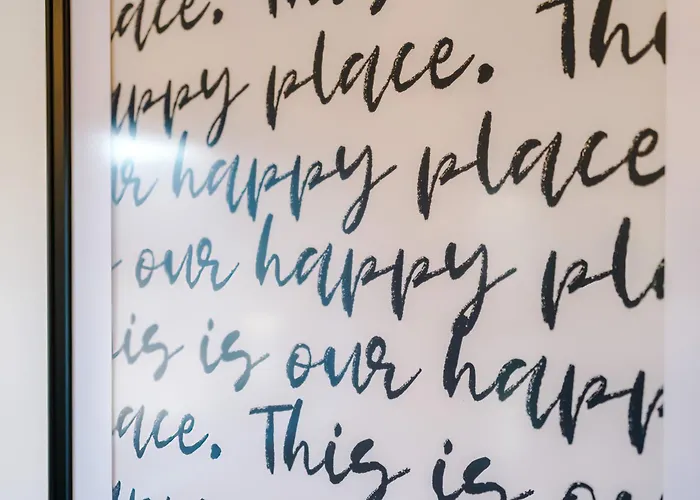 place. This
happy place. The
our happy place
our happy pla
This is our happ
place. This is